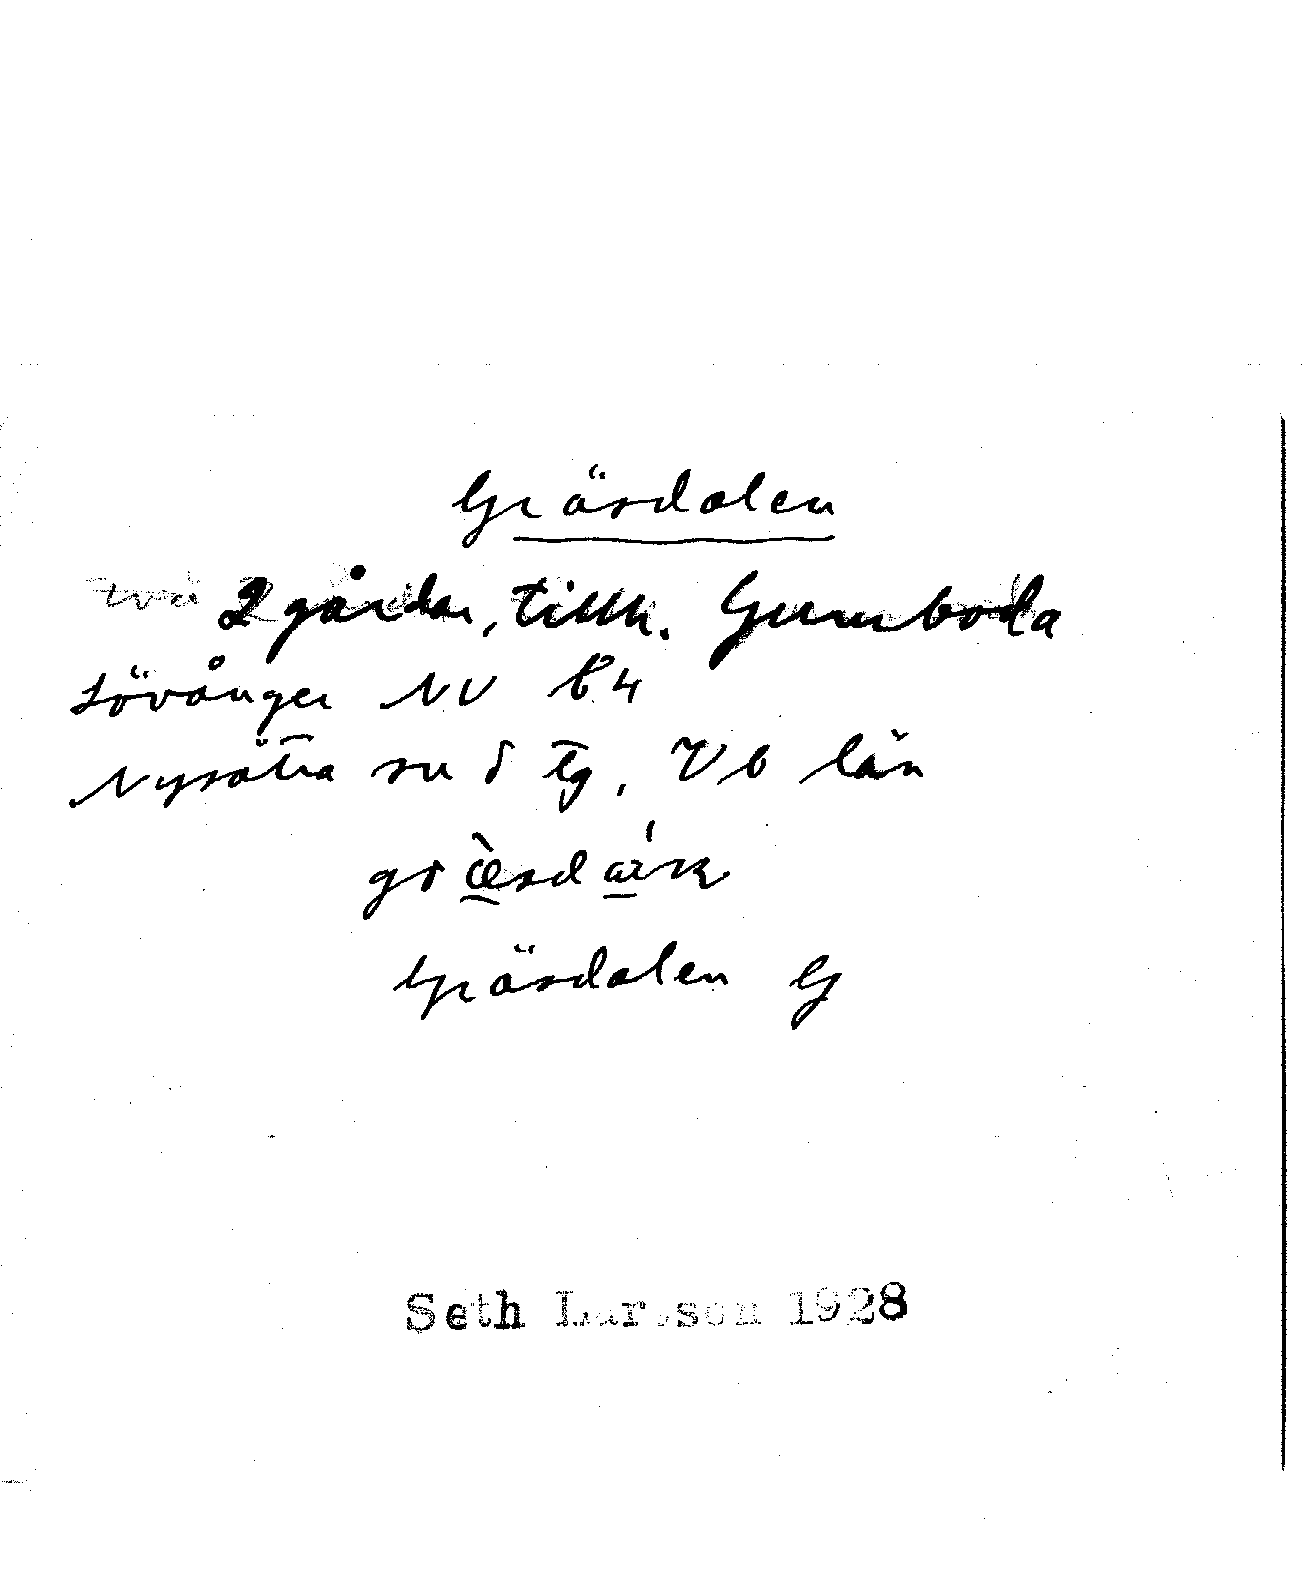 Gräsdalen
två 2 gårdar, tillh. Gumboda
Lövånger NV b4
Nysätra sn o tg, Vb län
Gräsdalen G
Seth Larsson 1928